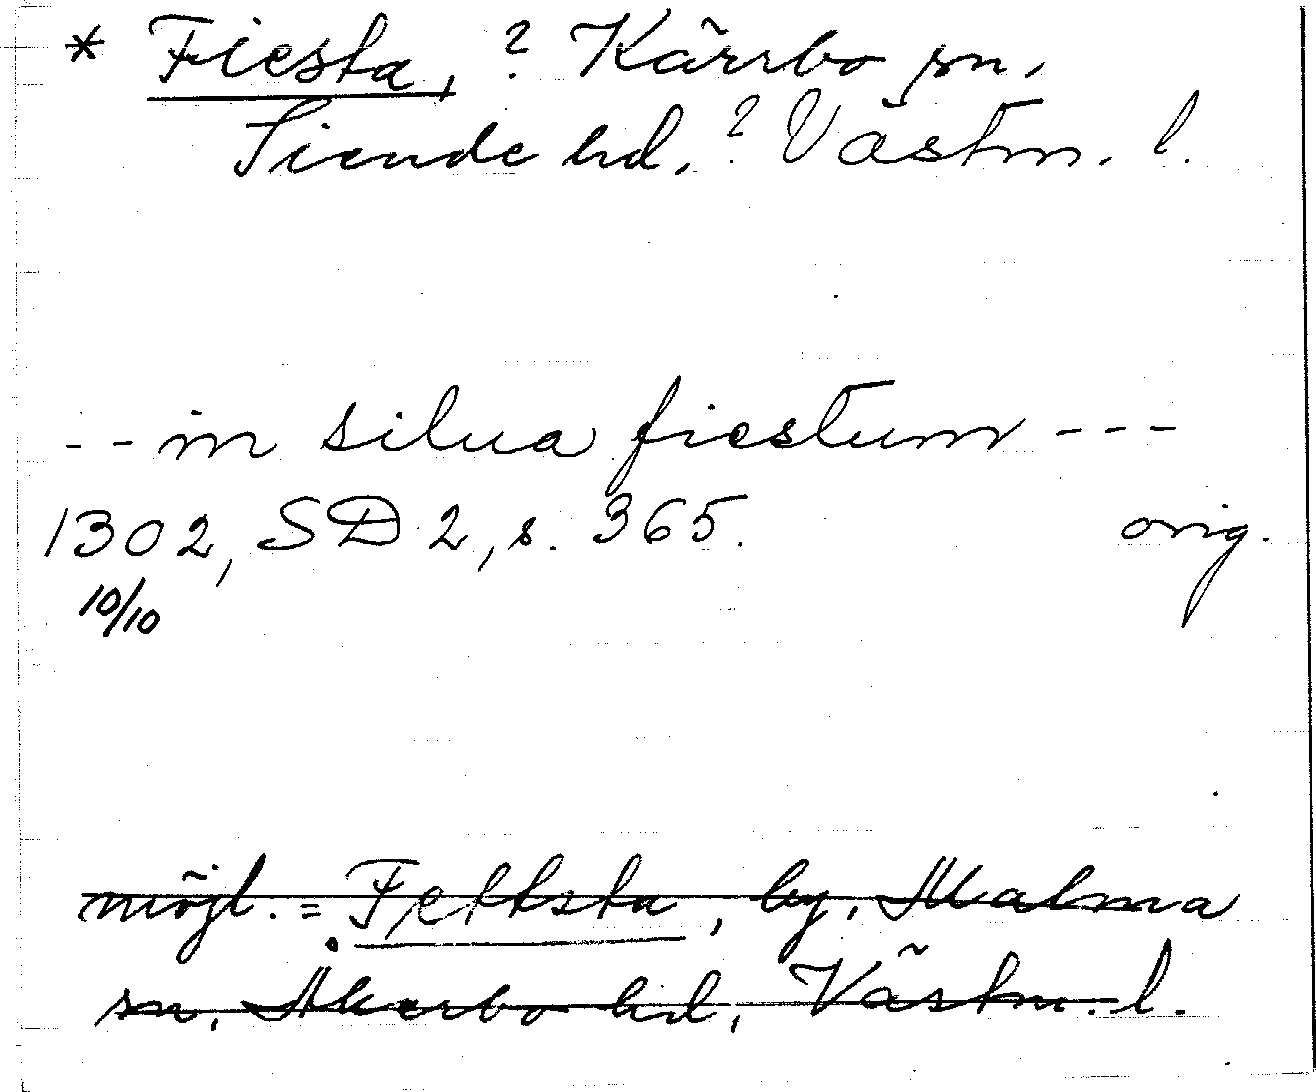 * Fiesta, ? Kärrbo sn,
Siende hd. ? Västm. l.
-- in silua fiestum ---
1302, SD 2, s. 365. orig.
10/10
möjl. = Feltsta, by, Malma
sn, Åkerbo hd, Västm. l.